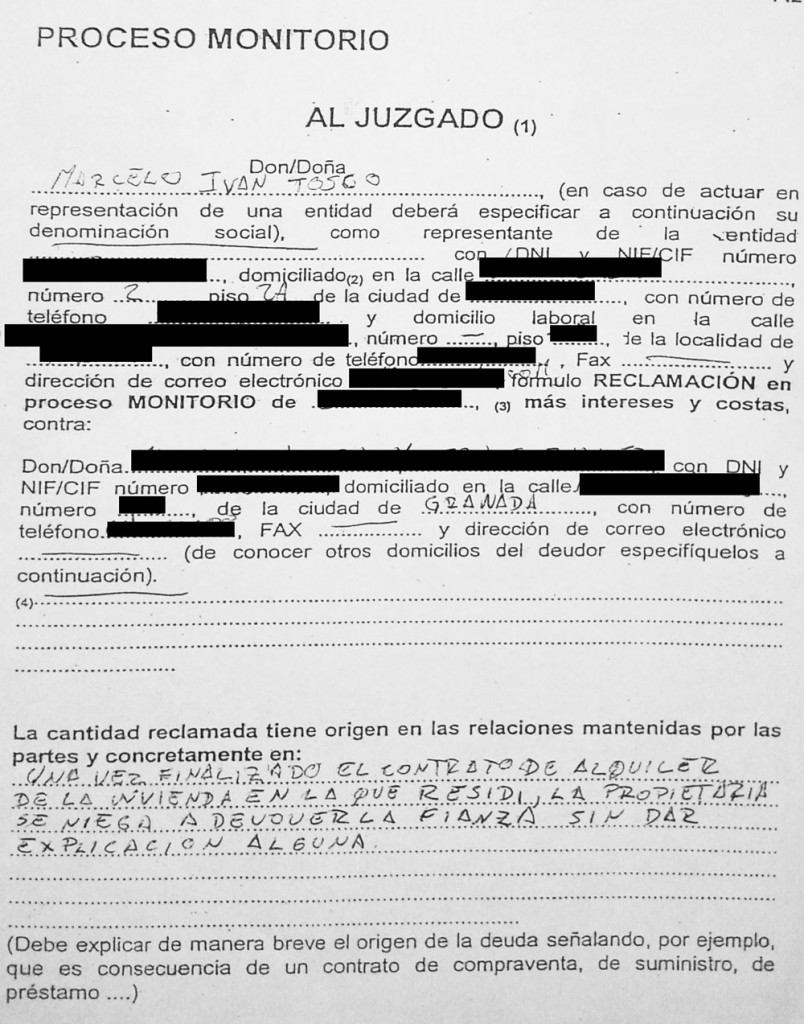 PROCESO MONITORIO
AL JUZGADO (1)
Don/Doña
MARCELO IVAN TOSGO, (en caso de actuar en
representación de una entidad deberá especificar a continuación su
denominación social), como representante de la entidad
con DNI y NIF/CIF número
, domiciliado(2) en la calle
número 2 piso 2A de la ciudad de , con número de
teléfono y domicilio laboral en la calle
, número –, piso , de la localidad de
, con número de teléfono , Fax y
dirección de correo electrónico formulo RECLAMACIÓN en
proceso MONITORIO de , (3) más intereses y costas,
contra:
Don/Doña. con DNI y
NIF/CIF número domiciliado en la calle
número , de la ciudad de GRANADA, con número de
teléfono , FAX y dirección de correo electrónico
(de conocer otros domicilios del deudor especifíquelos a
continuación).
(4)
La cantidad reclamada tiene origen en las relaciones mantenidas por las
partes y concretamente en:
UNA VEZ FINALIZADO EL CONTRATO DE ALQUILER
DE LA VIVIENDA EN LA QUE RESIDI, LA PROPIETARIA
SE NIEGA A DEVOLVER LA FIANZA SIN DAR
EXPLICACION ALGUNA.
(Debe explicar de manera breve el origen de la deuda señalando, por ejemplo,
que es consecuencia de un contrato de compraventa, de suministro, de
préstamo ....)